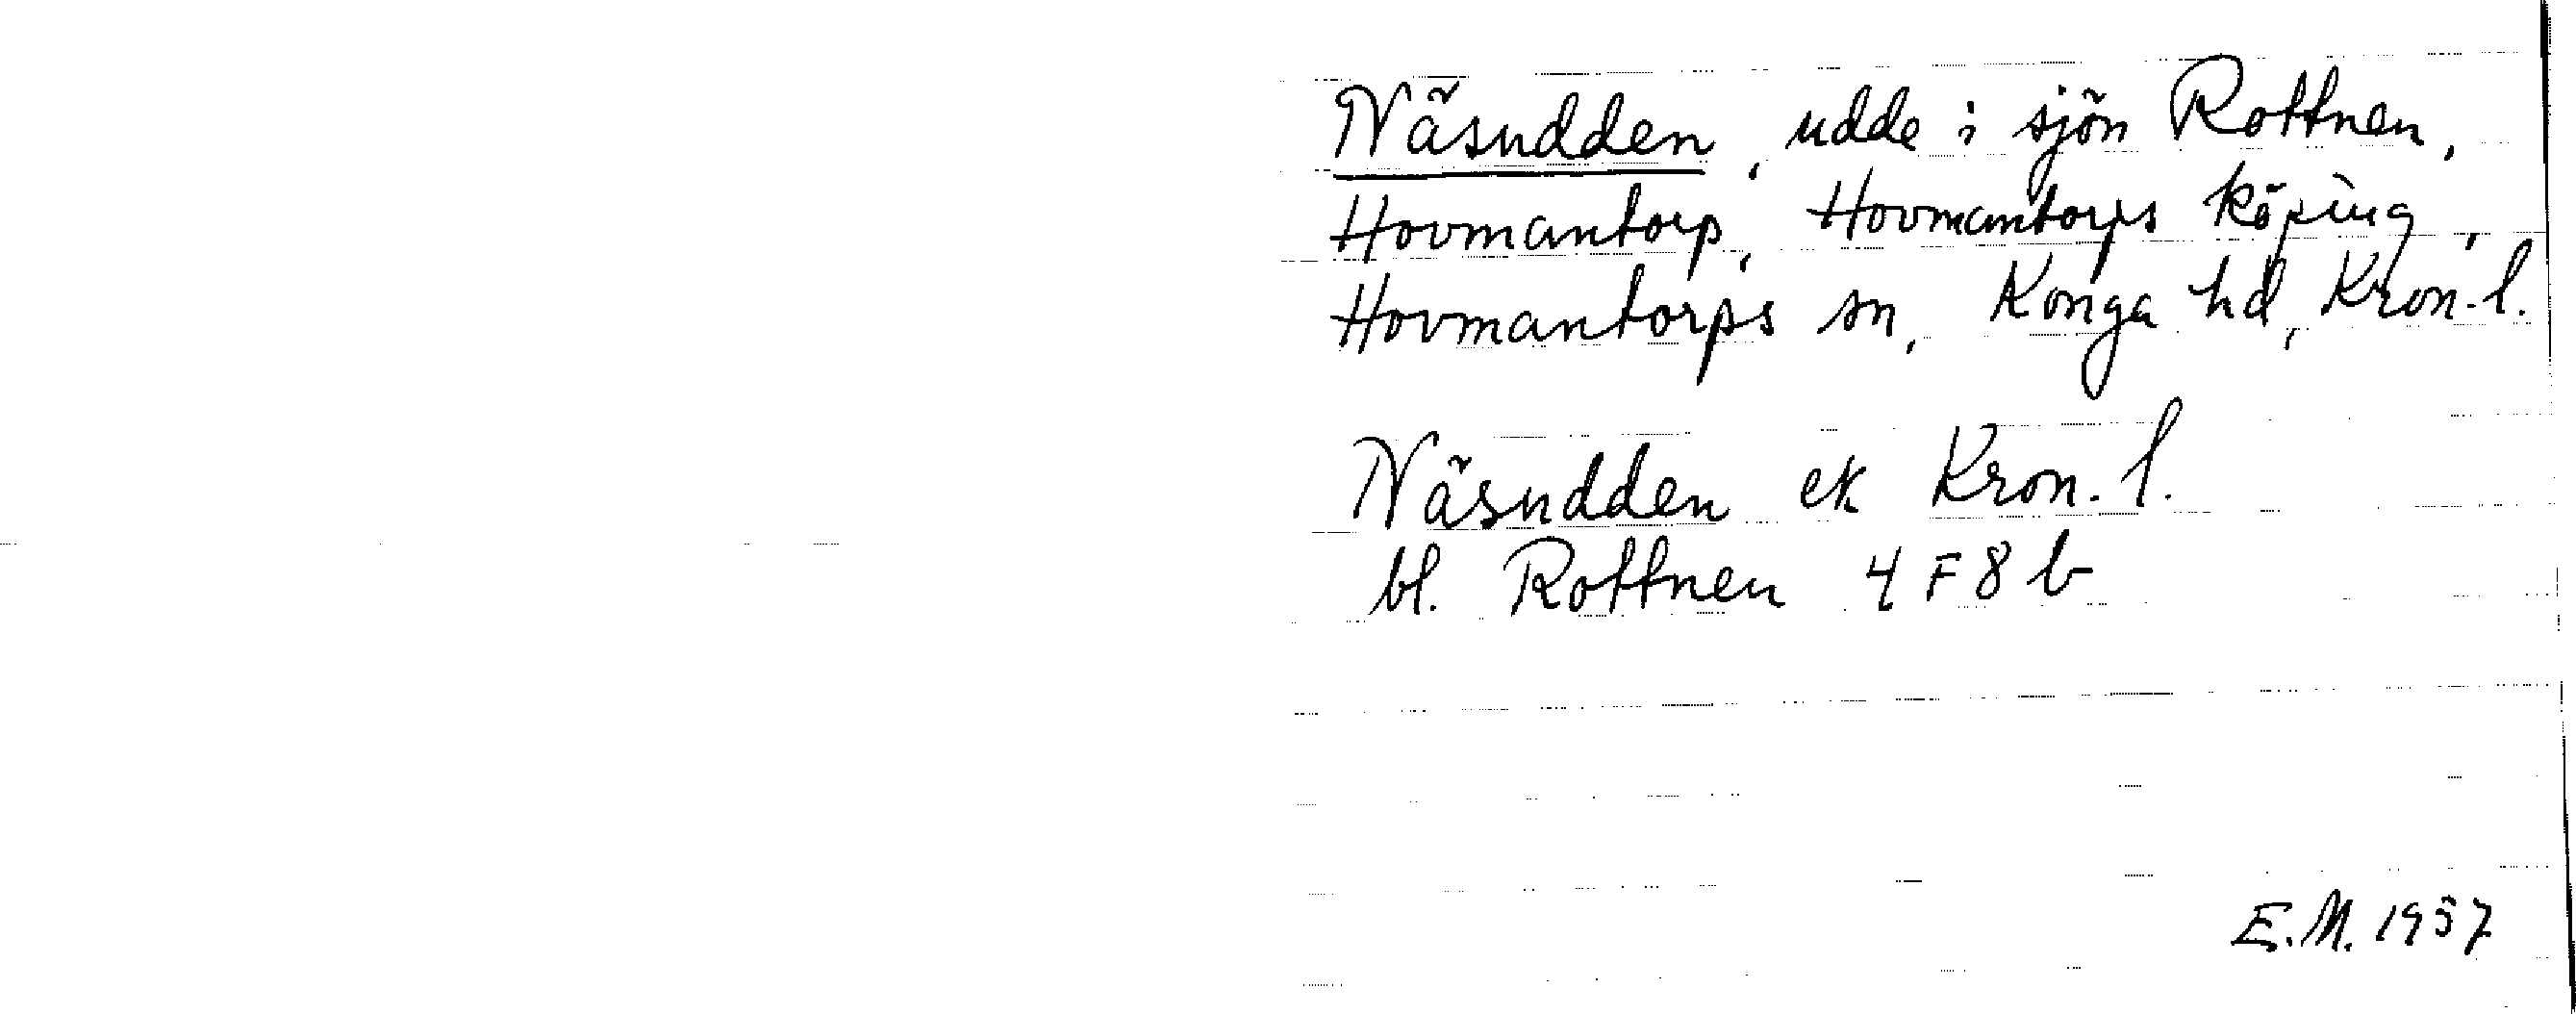 Näsudden, udde i sjön Rottnen,
Hovmantorp, Hovmantorps köping,
Hovmantorps sn, Konga hd, Kron. l.
Näsudden ek Kron. l.
bl. Rottnen 4 F 8 b
E.M. 1957